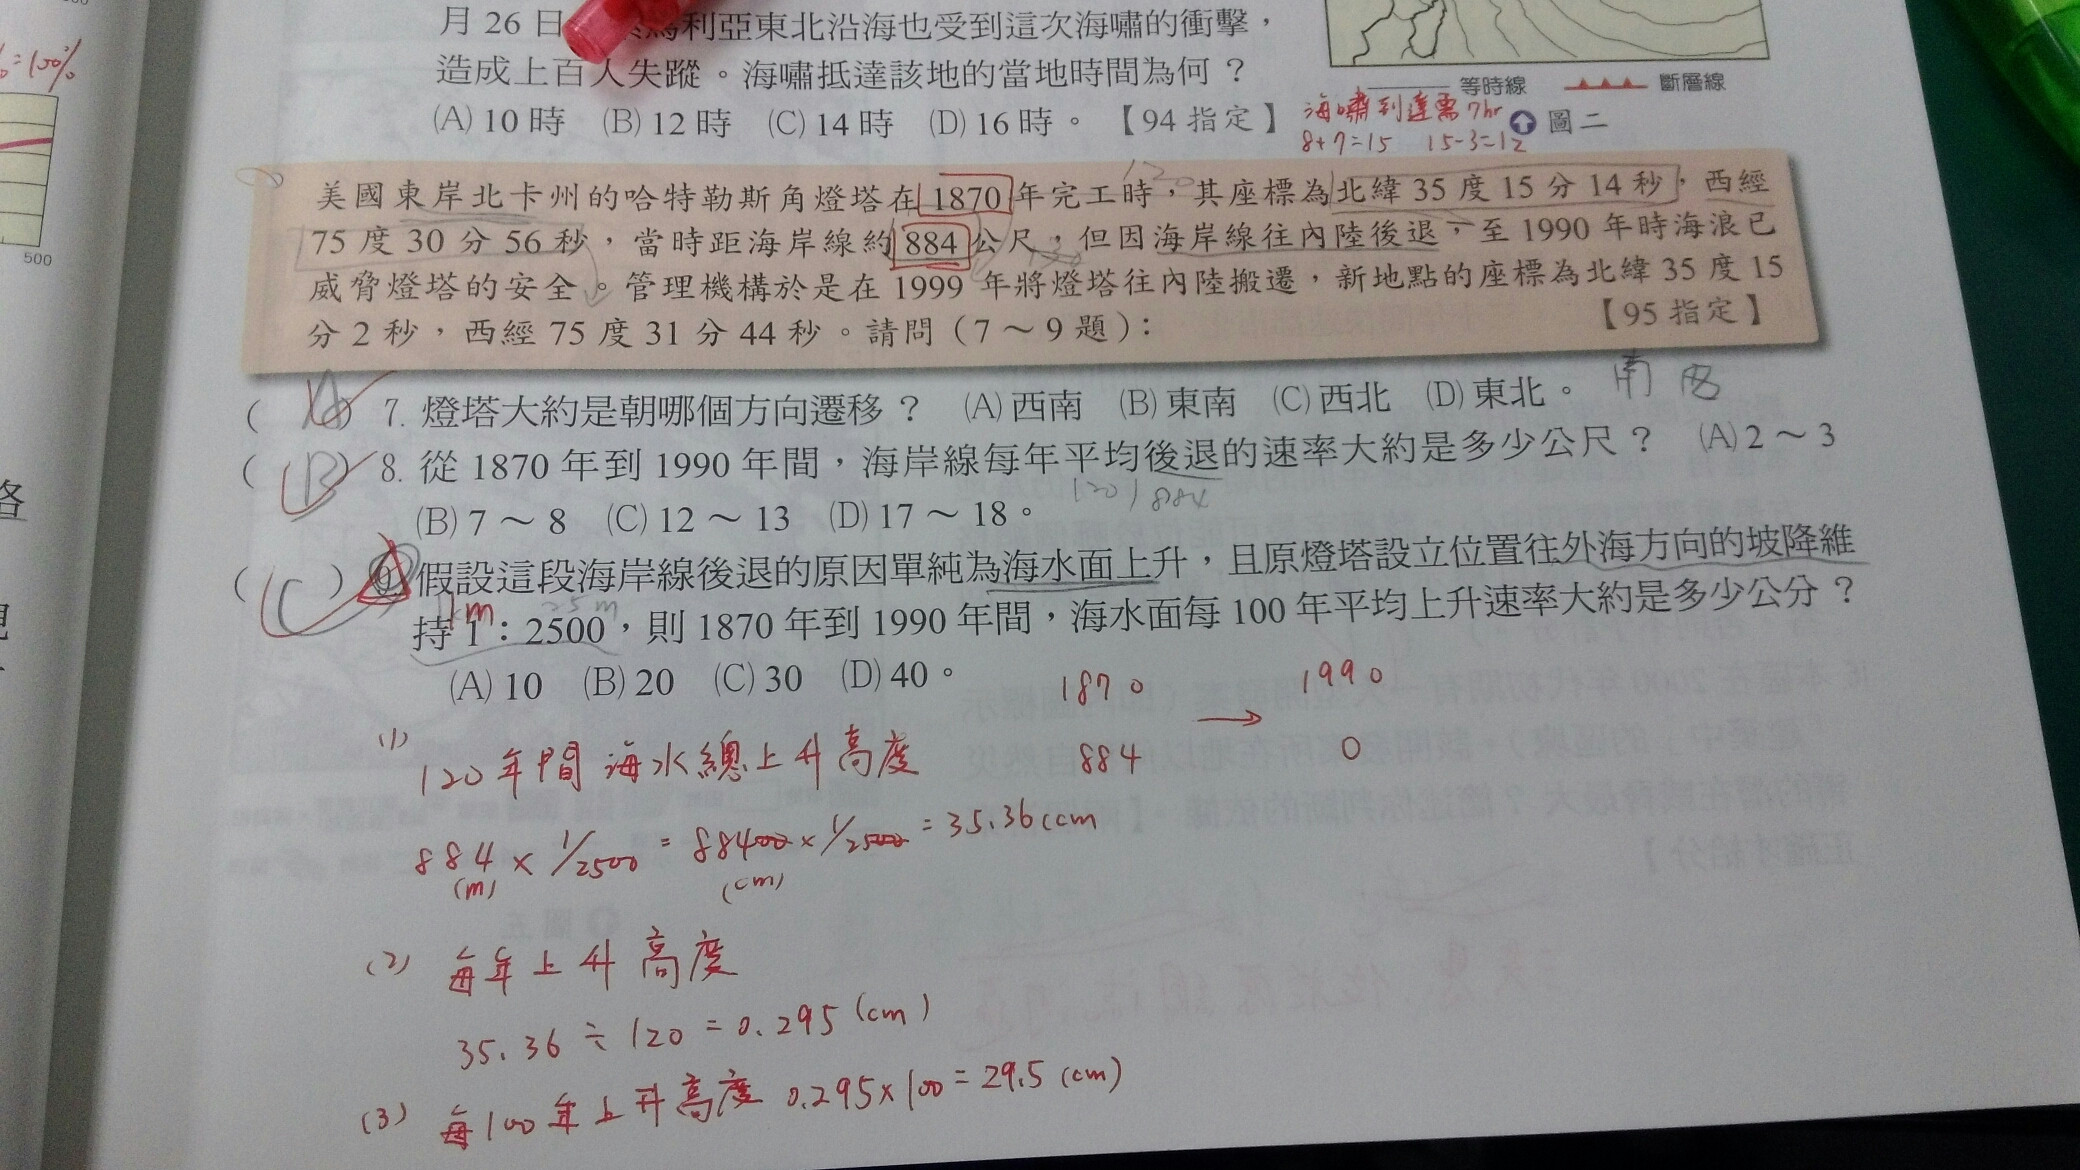 月26日
利亞東北沿海也受到這次海嘯的衝擊，
造成上百人失蹤。海嘯抵達該地的當地時間為何？
(A)10時 (B)12時 (C)14時 (D)16時。【94指定】
等時線 斷層線
圖二
海嘯到達需7hr
8+7=15 15-3=12
=100%
500
美國東岸北卡州的哈特勒斯角燈塔在1870年完工時，其座標為北緯35度15分14秒，西經
75度30分56秒，當時距海岸線約884公尺，但因海岸線往內陸後退，至1990年時海浪已
威脅燈塔的安全。管理機構於是在1999年將燈塔往內陸搬遷，新地點的座標為北緯35度15
分2秒，西經75度31分44秒。請問（7～9題）：
【95指定】
120
南 西
(A) 7. 燈塔大約是朝哪個方向遷移？ (A)西南 (B)東南 (C)西北 (D)東北。
(B) 8. 從1870年到1990年間，海岸線每年平均後退的速率大約是多少公尺？ (A)2～3
(B)7～8 (C)12～13 (D)17～18。
120)884
(C) 9. 假設這段海岸線後退的原因單純為海水面上升，且原燈塔設立位置往外海方向的坡降維
持1：2500，則1870年到1990年間，海水面每100年平均上升速率大約是多少公分？
25m
(A)10 (B)20 (C)30 (D)40。
1870 → 1990
884 0
(1) 120年間海水總上升高度
884 × 1/2500 = 88400 × 1/2500 = 35.36 (cm
(m) (cm)
(2) 每年上升高度
35.36 ÷ 120 = 0.295 (cm)
(3) 每100年上升高度 0.295×100 = 29.5 (cm)